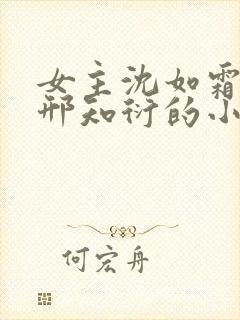 女主沈如霜
邢知衍的小
何宏舟